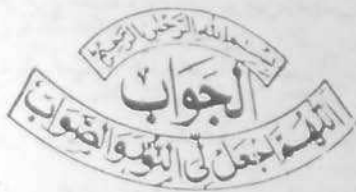 بِسْمِ اللهِ الرَّحْمٰنِ الرَّحِيْمِ
الجَوَاب
اَللّٰهُمَّ اجْعَلْ لِّى النُّوْرَ وَالصَّوَاب